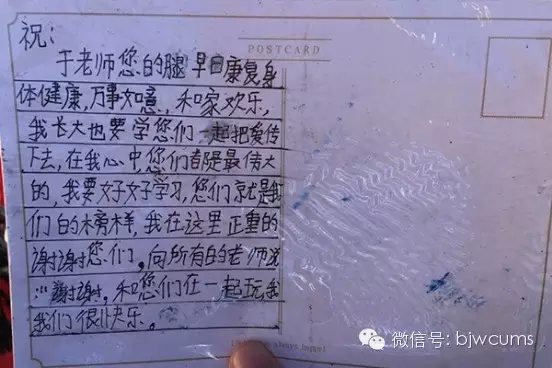 祝:
POSTCARD
于老师您的腿早日康复身
体健康,万事如意,和家欢乐,
我长大也要学您们一起把爱传
下去,在我心中,您们都是最伟大
的,我要好好学习,您们就是我
们的榜样,我在这里正重的
谢谢您们。向所有的老师说
谢谢,和您们在一起玩,我
我们很快乐。
微信号: bjwcums